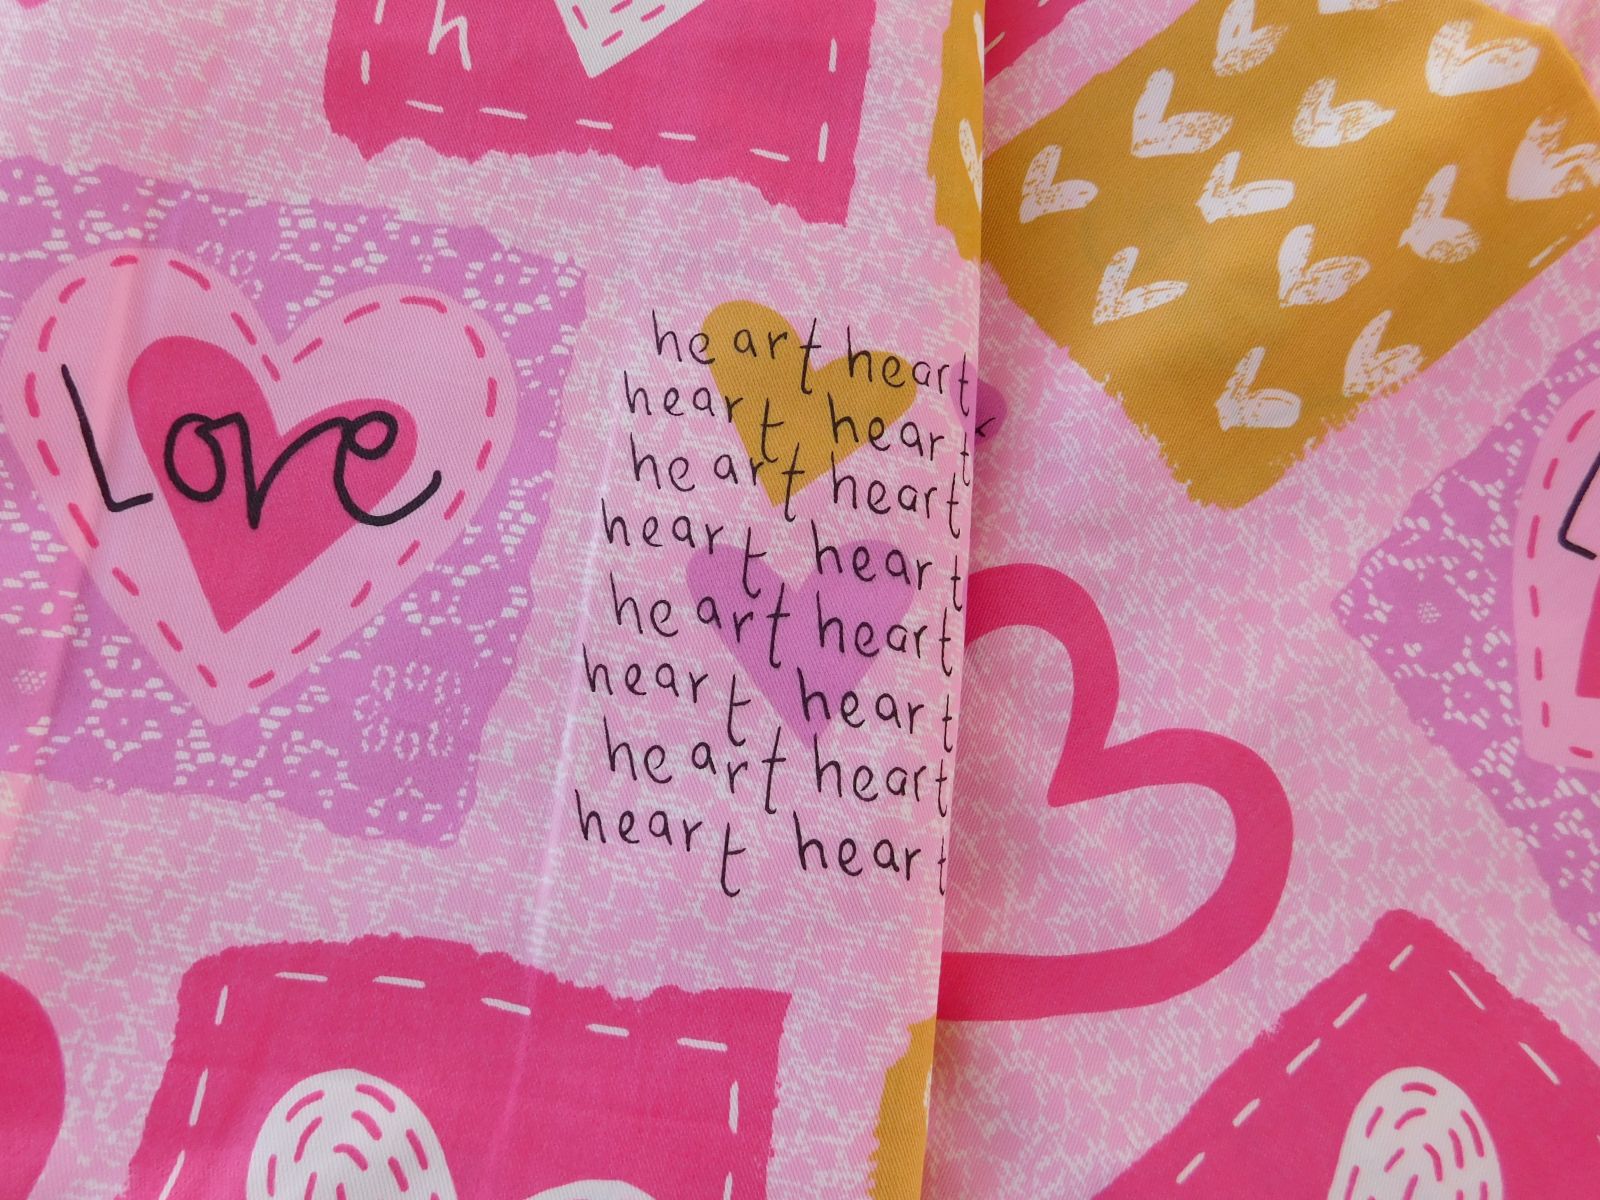 h
Love
heart heart
heart heart
heart heart
heart heart
heart heart
heart heart
heart heart
heart heart
L